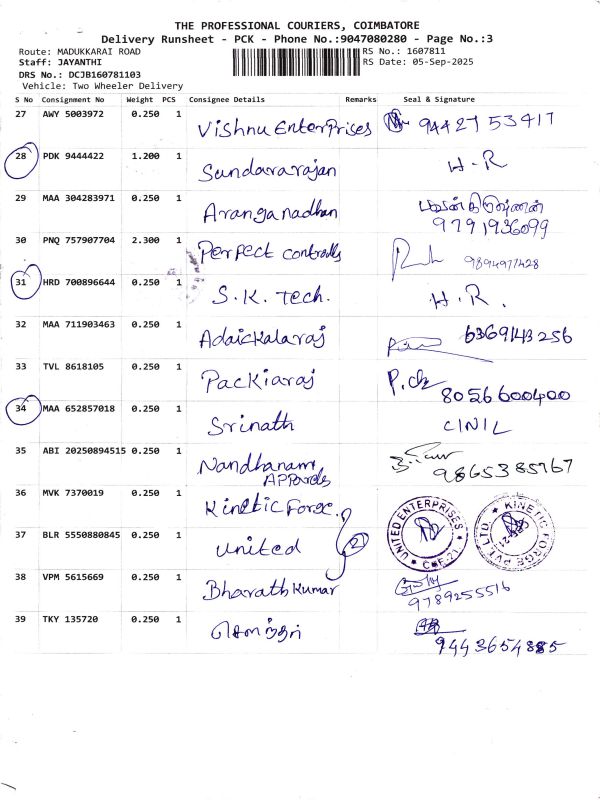 THE PROFESSIONAL COURIERS, COIMBATORE
Delivery Runsheet - PCK - Phone No.:9047080280 - Page No.:3
Route: MADUKKARAI ROAD RS No.: 1607811
Staff: JAYANTHI RS Date: 05-Sep-2025
DRS No.: DCJB160781103
Vehicle: Two Wheeler Delivery
S No Consignment No Weight PCS Consignee Details Remarks Seal & Signature
27 AWY 5003972 0.250 1 Vishnu Enterprises 94427 53417
28 PDK 9444422 1.200 1 Sundararajan H-R
29 MAA 304283971 0.250 1 Aranganadhan
9791936099
30 PNQ 757907704 2.300 1 Perfect controlls 9894977428
31 HRD 700896644 0.250 1 S.K. Tech. H.R.
32 MAA 711903463 0.250 1 Adaickalaraj 6369143256
33 TVL 8618105 0.250 1 Packiaraj 8056600400
34 MAA 652857018 0.250 1 Srinath CINIL
35 ABI 20250894515 0.250 1 Nandhanam
Apparels 9865385767
36 MVK 7370019 0.250 1 Kinetic Force. UNITED ENTERPRISES KINETIC FORGE PVT. LTD.
37 BLR 5550880845 0.250 1 United 2
38 VPM 5615669 0.250 1 Bharath Kumar 9789255516
39 TKY 135720 0.250 1